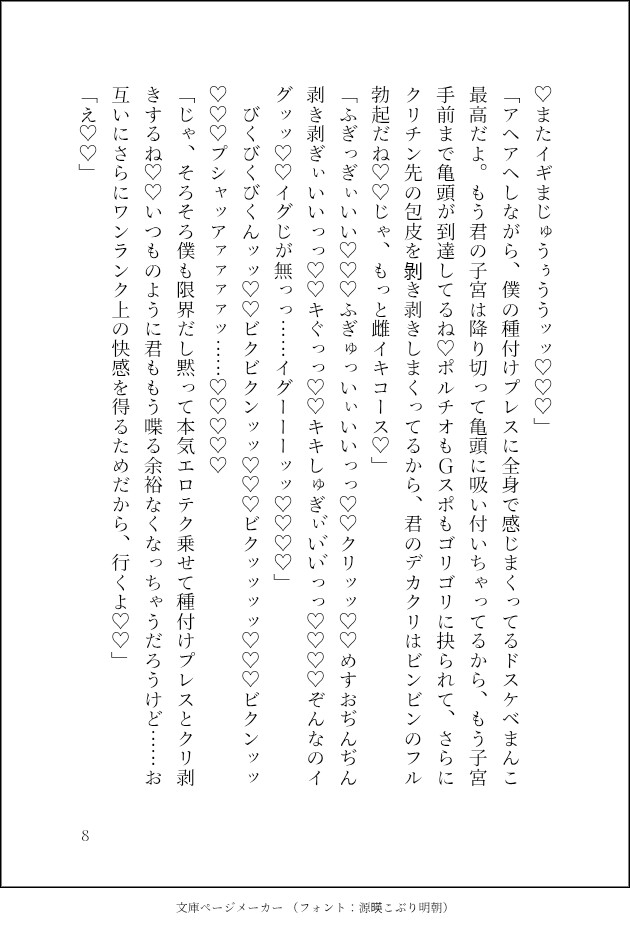 ♡またイギまじゅうぅううッッ♡♡♡」
「アヘアヘしながら、僕の種付けプレスに全身で感じまくってるドスケベまんこ
最高だよ。もう君の子宮は降り切って亀頭に吸い付いちゃってるから、もう子宮
手前まで亀頭が到達してるね♡ポルチオもＧスポもゴリゴリに抉られて、さらに
クリチン先の包皮を剝き剥きしまくってるから、君のデカクリはビンビンのフル
勃起だね♡♡じゃ、もっと雌イキコース♡」
「ふぎっぎぃいい♡♡♡ふぎゅっいぃいいっっ♡♡クリッッ♡♡めすおぢんぢん
剥き剥ぎぃいいっっ♡♡キぐっっ♡♡キキしゅぎぃ゛い゛い゛っっ♡♡♡♡ぞんなのイ
グッッ♡♡イグじが無っっ……イグーーーッッ♡♡♡♡」
びくびくびくんッッ♡♡ビクビクンッッ♡♡♡ビクッッッッ♡♡♡ビクンッッ
♡♡♡プシャッアァァァァッ……♡♡♡♡♡
「じゃ、そろそろ僕も限界だし黙って本気エロテク乗せて種付けプレスとクリ剥
きするね♡♡いつものように君ももう喋る余裕なくなっちゃうだろうけど……お
互いにさらにワンランク上の快感を得るためだから、行くよ♡♡」
「え♡♡」
8
文庫ページメーカー（フォント：源暎こぶり明朝）